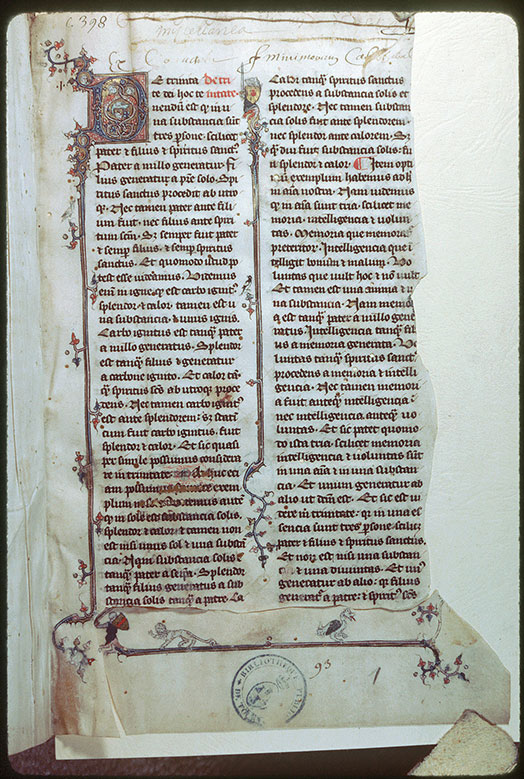 398
miscellanea
De trinita De tri
te et hoc te intate.
nendū est q̄ in u
na substancia sūt
tres p̄sone. scilicet
pater & filius & spiritus sanctꝰ.
Pater a nullo generatur. Fi
lius generatur a p̄re solo. Spi
ritus sanctus procedit ab utro
q̄. Nec tamen pater ante fili
um fuit. nec filius ante spiri
tum scm̄. Sꝫ semper fuit pater
& semꝑ filius. & semꝑ spiritus
sanctus. Et quomodo istud p
test esse uideamus. Videmus
enī in igne q̄ est carbo ignitꝰ.
splendor & calor. tamen est u
na substancia. & unus ignis.
Carbo ignitus est tanq̄ pater
a nullo generatus. Splendor
est tanq̄ filius & generatur
a carbone ignito. Et calor tā
q̄ spiritus scs̄ ab utroq̄ proce
dens. Nec tamen carbo ignitꝰ
est ante splendorem: sꝫ stati
cum fuit carbo ignitus. fuit
splendor & calor. Et sic quasi
per simile possumus considera
re in trinitate.
plum in sole. Videmus autē
q̄ in sole est substancia solis.
splendor & calor. & tamen non
est nisi unus sol & una substā
cia. Nam substancia solis
tanq̄ pater a seipa. Splendor
tanq̄ filius generatus a sub
stancia solis tanq̄ a patre. Ca
Calor tanq̄ spiritus sanctus
procedens a substancia solis et
splendore. Nec tamen substan
cia solis fuit ante splendorem.
nec splendor ante calorem. Sꝫ
q̄ diu fuit substancia solis. fu
it splendor & calor. Item opti
mū exemplum habemus ad h
in aīa nostra. Nam uidemus
q̄ in aīa sunt tria. scilicet me
moria. intelligencia & uolun
tas. Memoria que memorat
preteritorꝫ. Intelligencia que ī
telligit bonum & malum. Uo
luntas que uult hoc & nō uult
Et tamen est una anima & u
na substancia. Nam memo
q̄ est tanq̄ pater a nullo gene
ratus. Intelligencia tanq̄ fili
us a memoria generata. Vo
luntas tanq̄ spiritus sanctꝰ
procedens a memoria & intelli
gencia. Nec tamen memori
a fuit anteq̄ intelligencia
nec intelligencia anteq̄ uo
luntas. Et sic patet quomo
do ista tria. scilicet memoria
intelligencia & uoluntas sūt
in una aīa & in una substan
cia. Et unum generatur ab
alio ut dcm̄ est. Et sic est ui
dere in trinitate: q̄ in una es
sencia sunt tres p̄sone. scilicꝫ
pater & filius & spiritus sanctus.
Et non est nisi una substan
tia & una diuinitas. Et unꝰ
generatur ab alio: q̄ filius
generatꝰ a patre: & spiritꝰ scs̄
93
1
BIBLIOTHECA